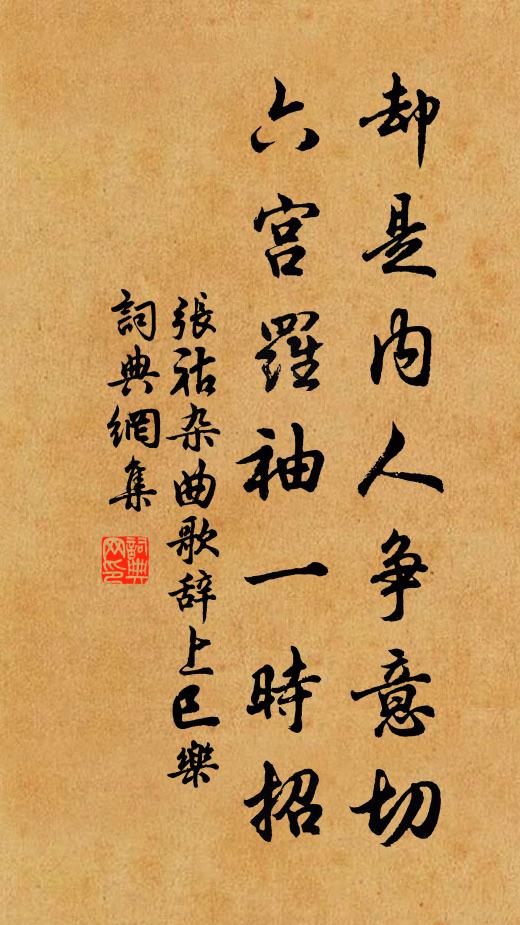 却是内人争意切
六宫羅袖一時招
張祜杂曲歌辞上巳樂
詞典網集
詞典网印